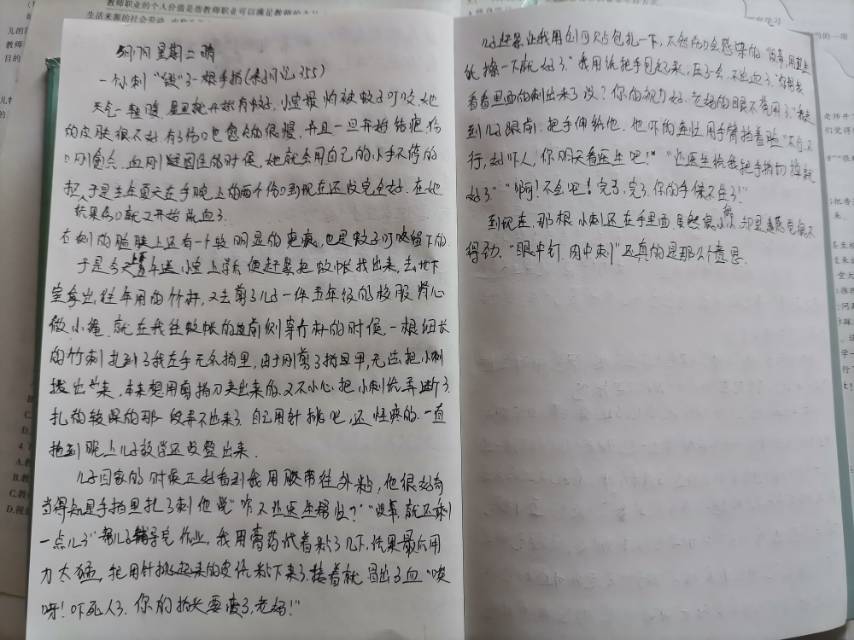 教师职业的个人价值是指教师职业可以满足教师的
生活来源的社会劳动
5月7日 星期二 晴
一小刺“毁”了一根手指
天气一转暖,屋里就开始有蚊子,小宝最怕被蚊子叮咬,她
的皮肤很不好,有了伤口也愈合的很慢,并且一旦开始结疤,伤
口周围会,血刚凝固住的时候,她就会用自己的小手不停的
于是去年夏天在手腕上的两个伤口到现在还没完全好,在她
抠,结果伤口就又开始流血了
在她的腿上还有一个较明显的疤痕,也是蚊子叮咬留下的
于是今天上午送小宝上学,便赶紧把蚊帐找出来,去地下
室拿出往年用的竹杆,又去剪了儿子一件五年级的校服背心
做小绳,就在我往蚊帐的边前侧穿竹杆的时候,一根细长
的竹刺扎到了我左手无名指里,由于刚剪了指甲,无法把小刺
拔出来,本来想用剪指刀夹出来的,又不小心把小刺给弄断了
扎的较深的那一段弄不出来了,自己用针挑吧,还怪疼的,一直
挑到晚上儿子放学还没整出来.
儿子回家的时候正好看到我用胶带往外粘,他很好奇
当得知是手指里扎了刺他说“咋不让医生帮忙?”“没事,就还剩
一点儿了”帮儿子辅导完作业,我用膏药试着粘了几下,结果最后用
力太猛,把用针挑起来的皮给粘下来了,接着就冒出了血“哎
呀!吓死人了,你的指头要废了,老妈!”
儿子赶紧让我用创可贴包扎一下,不然伤口会感染的“没事,用
纸擦一下就好了”我用纸把手包起来,压了会,不出血了“你帮我
看看里面的刺出来了没?你的视力好,老妈的眼不管用了”我走
到儿子跟前,把手伸给他,他吓的连忙用手臂挡着脸“不行不
行,太吓人,你明天看医生吧!”“让医生给我把手指切掉就
好了”“啊!不会吧!完了,完了,你的手保不住了!”
到现在,那根小刺还在手里面,虽然很小小的,却是总感觉很不
得劲,“眼中钉,肉中刺”还真的是那个意思.